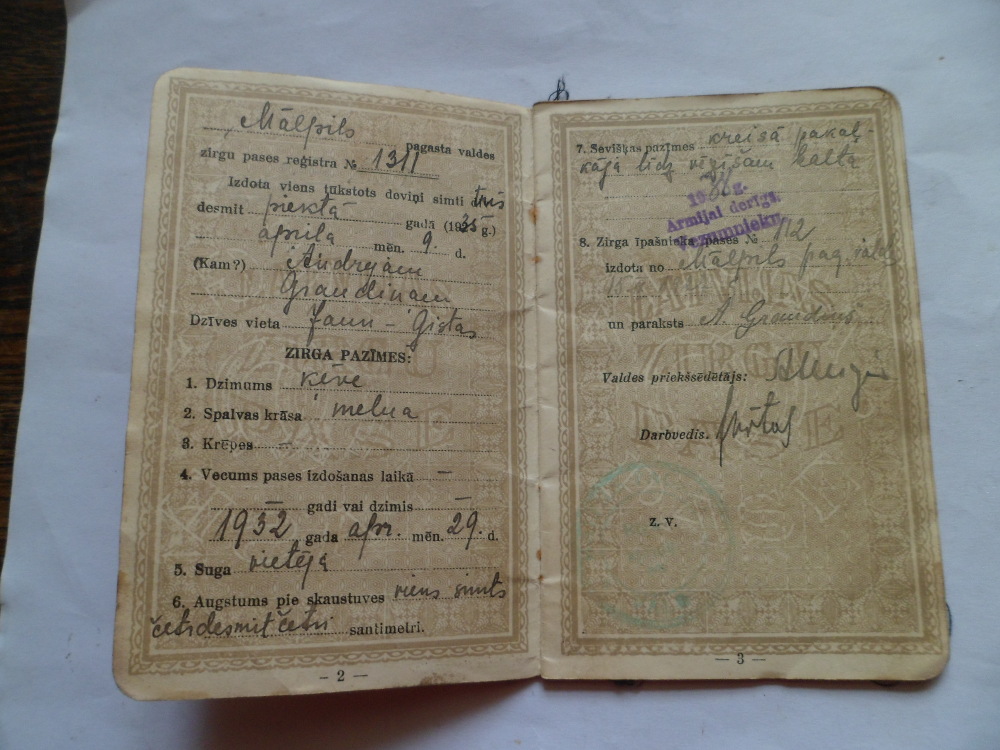 Mālpils pagasta valdes
zirgu pases reģistra № 1311
Izdota viens tūkstots deviņi simti trīs
desmit piektā gadā (1935 g.)
aprīļa mēn. 9. d.
(Kam?) Andrejam
Graudiņam
Dzīves vieta Jaun-Ģistas
ZIRGA PAZĪMES:
1. Dzimums ķēve
2. Spalvas krāsa melna
3. Krēpes —
4. Vecums pases izdošanas laikā —
— gadi vai dzimis —
1932 gada apr. mēn. 29. d.
5. Suga vietēja
6. Augstums pie skaustuves viens simts
četrdesmit četri santimetri.
— 2 —
7. Sevišķas pazīmes kreisā pakaļ-
kāja līdz vēzīšam balta
19 g.
Armijai derīgs.
8. Zirga īpašnieka pases № 112
izdota no Mālpils pag. valdes
un paraksts A. Graudiņš
Valdes priekšsēdētājs:
Darbvedis.
Z. V.
— 3 —